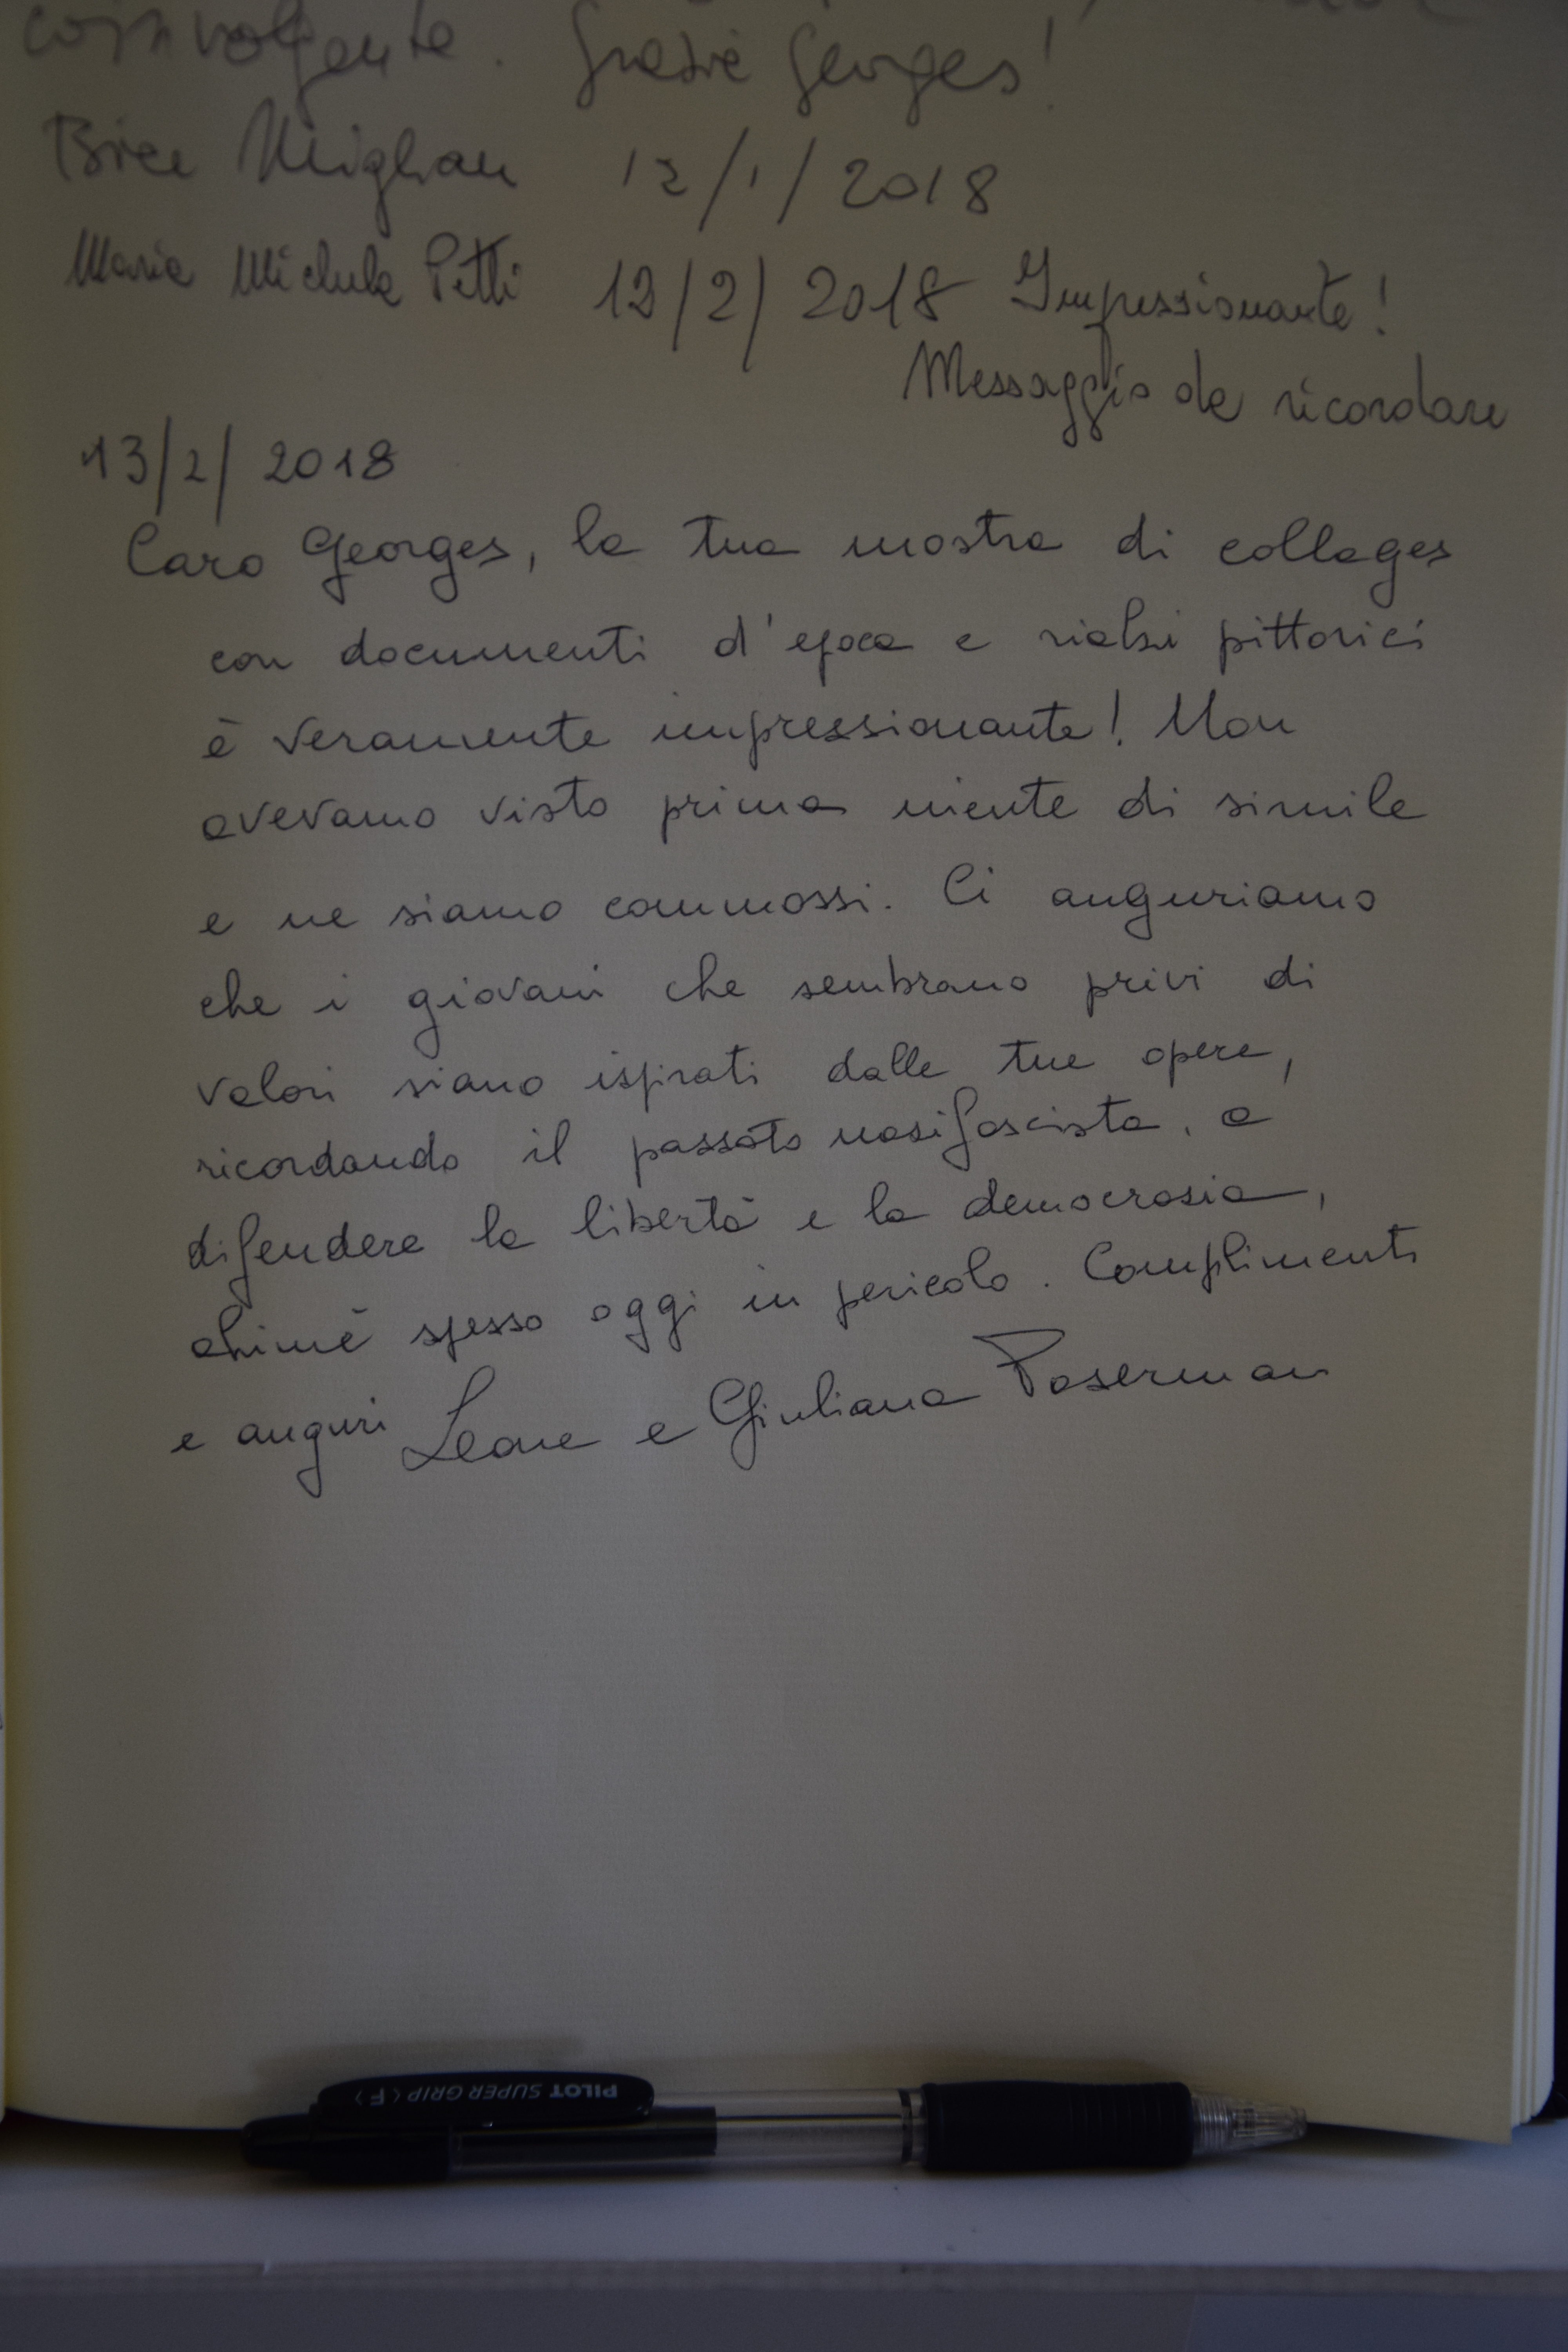 coinvolgente. Grazie Georges!
Bice Migliau 12/1/2018
Maria Michela Petti 12/2/2018 Impressionante!
Messaggio da ricordare
13/2/2018
Caro Georges, la tua mostra di collages
con documenti d'epoca e rialzi pittorici
è veramente impressionante! Non
avevamo visto prima niente di simile
e ne siamo commossi. Ci auguriamo
che i giovani che sembrano privi di
valori siano ispirati dalle tue opere,
ricordando il passato nazifascista, a
difendere la libertà e la democrazia,
ahimè spesso oggi in pericolo. Complimenti
e auguri Leone e Giuliana Paserman
PILOT SUPER GRIP (F)